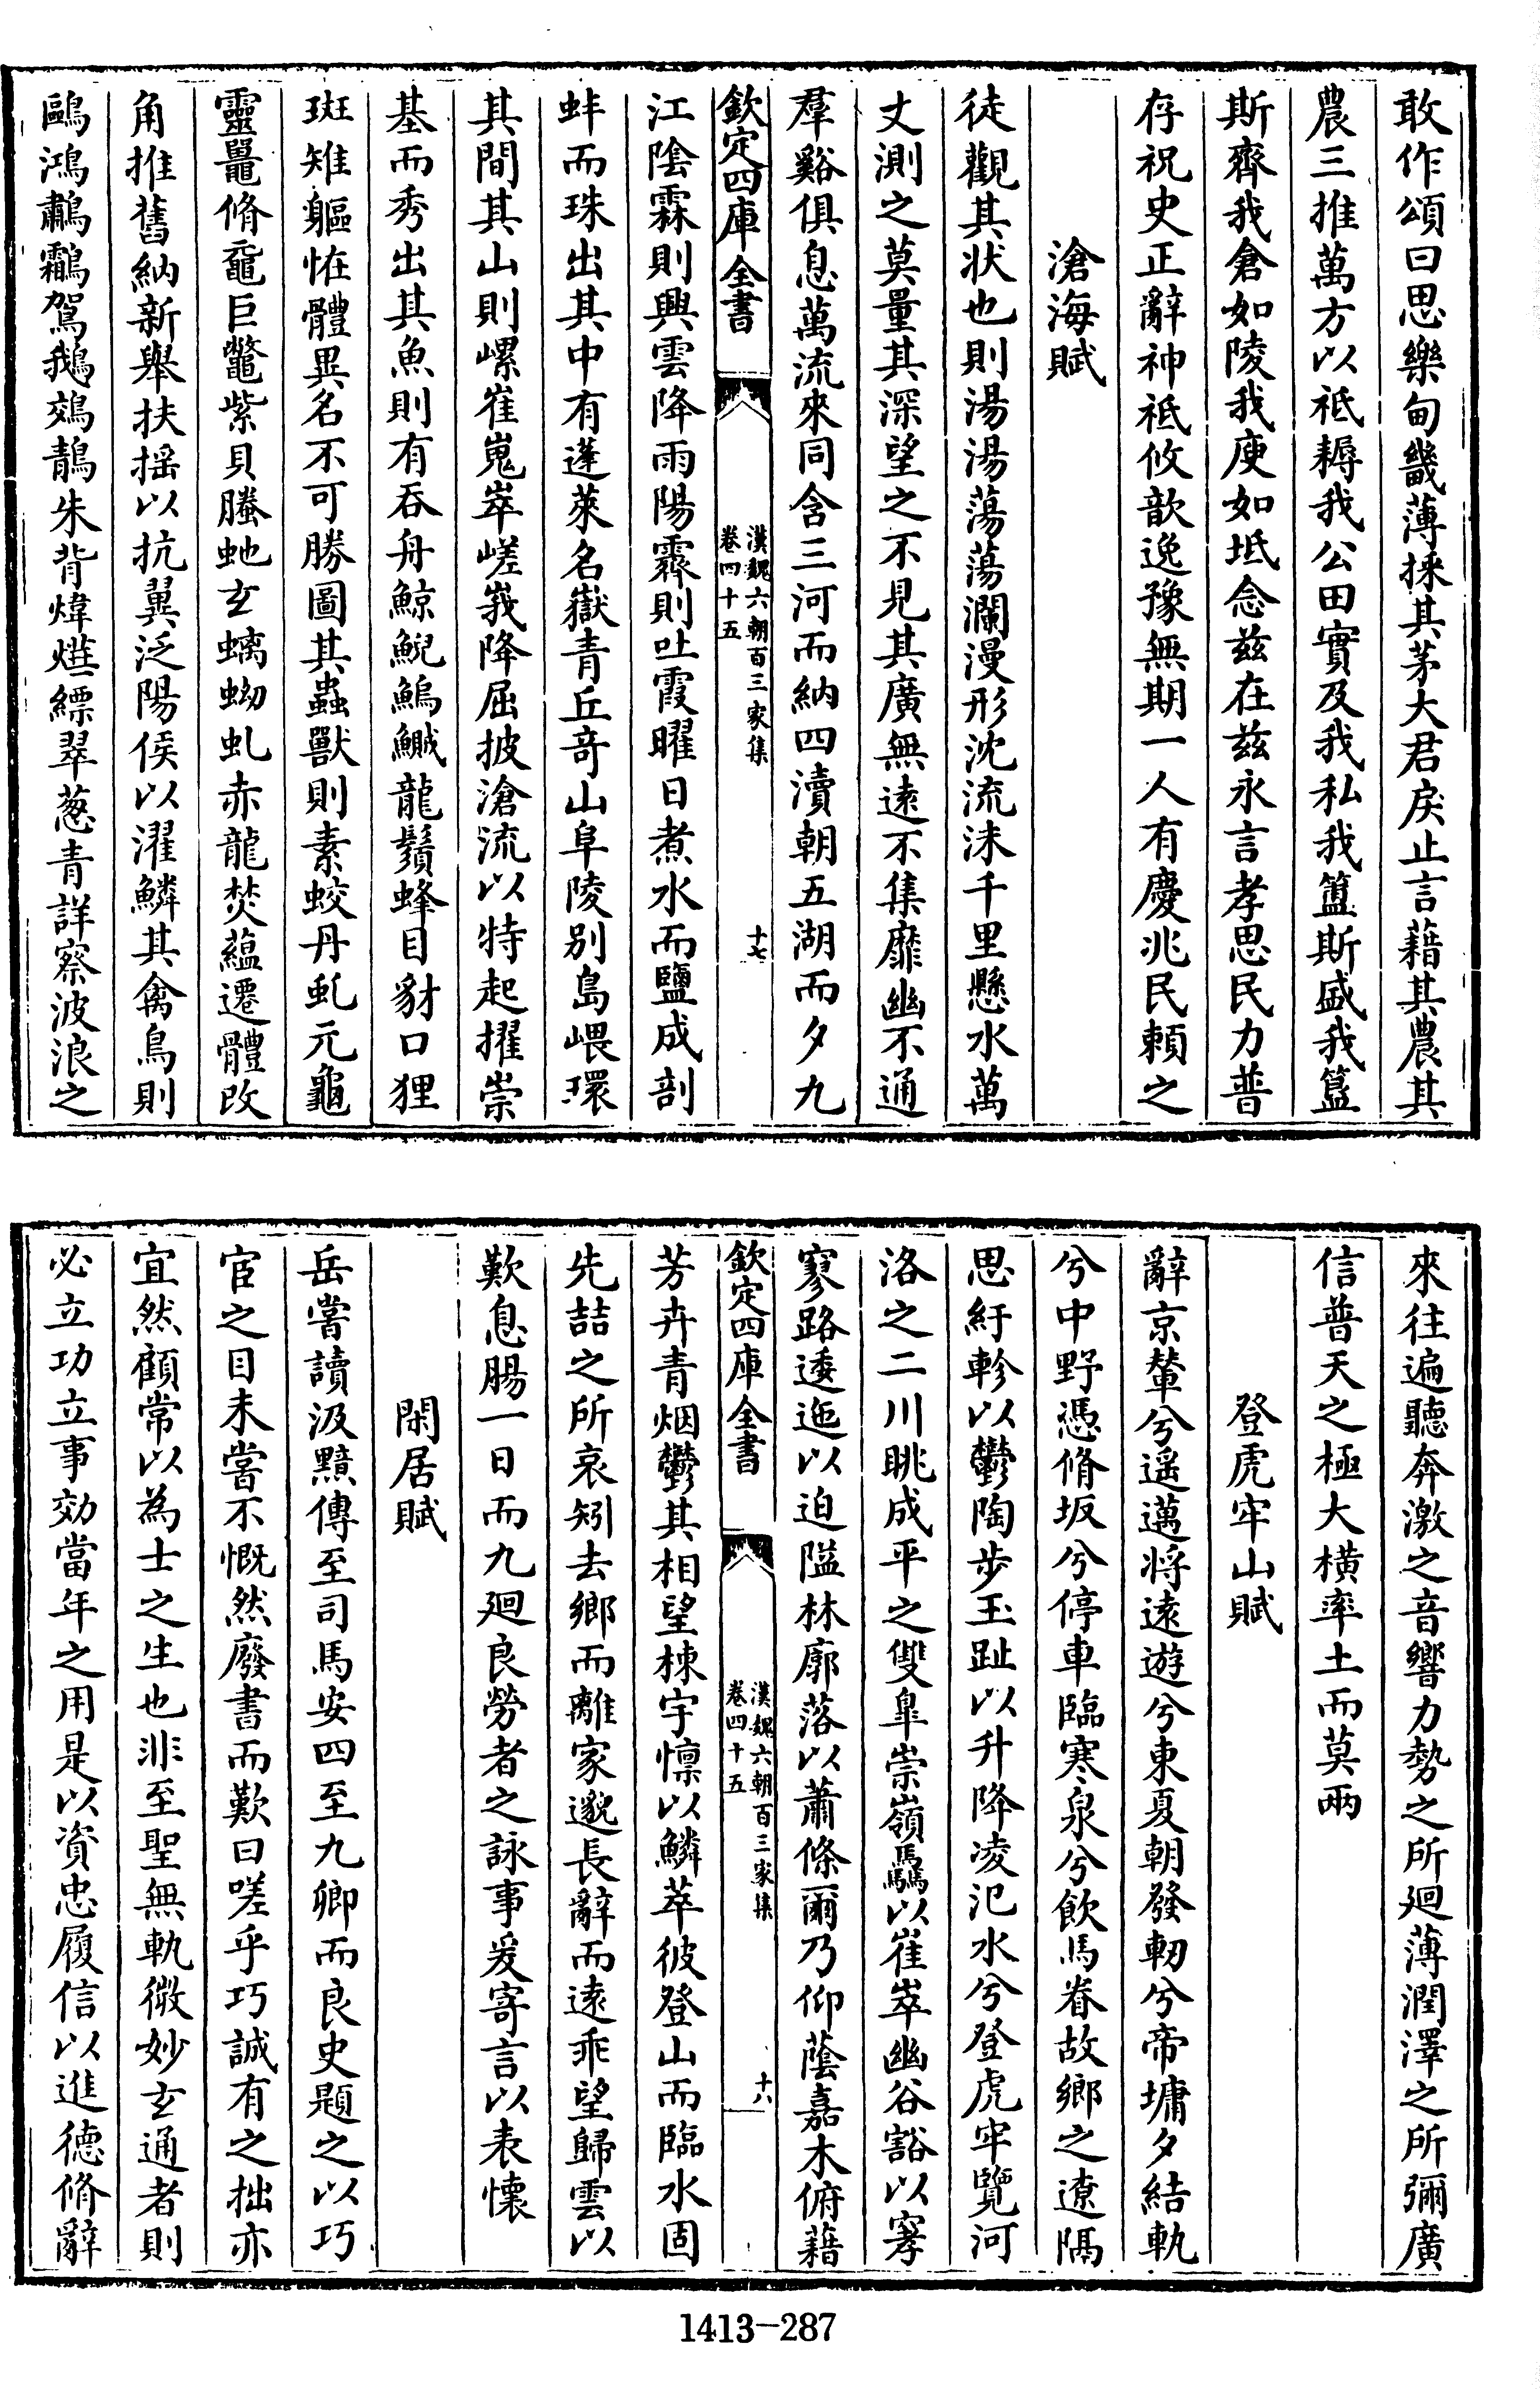 敢作頌曰思樂甸畿薄採其茅大君戾止言藉其農其
農三推萬方以祗耨我公田實及我私我簠斯盛我簋
斯齊我倉如陵我庾如坻念兹在兹永言孝思民力普
存祝史正辭神祗攸歆逸豫無期一人有慶兆民賴之
滄海賦
徒觀其狀也則湯湯蕩蕩瀾漫形沈流沬千里懸水萬
丈測之莫量其深望之不見其廣無遠不集靡幽不通
羣谿俱息萬流來同含三河而納四瀆朝五湖而夕九
欽定四庫全書
漢魏六朝百三家集
卷四十五
十七
江陰霖則興雲降雨陽霽則吐霞曜日煮水而鹽成剖
蚌而珠出其中有蓬萊名嶽青丘竒山阜陵别島嵔環
其間其山則嶵崔嵬崒嵯峩降屈披滄流以特起擢崇
基而秀出其魚則有吞舟鯨鯢鰞鱡龍鬚蜂目豺口狸
斑雉軀恠體異名不可勝圖其蟲獸則素蛟丹虬元龜
靈鼉脩黿巨鼈紫貝螣虵玄螭蚴虬赤龍焚蘊遷體改
角推舊納新舉扶揺以抗翼泛陽侯以濯鱗其禽鳥則
鷗鴻鷫鸘鴐鵝鵁鶄朱背煒燁縹翠葱青詳察波浪之
來往遍聽奔激之音響力勢之所廻薄潤澤之所彌廣
信普天之極大横率土而莫兩
登虎牢山賦
辭京輦兮遥邁將遠遊兮東夏朝發軔兮帝墉夕結軌
兮中野憑脩坂兮停車臨寒泉兮飲馬眷故鄉之遼隔
思紆軫以鬱陶步玉趾以升降凌汜水兮登虎牢覽河
洛之二川眺成平之雙臯崇嶺驫以崔崒幽谷豁以窙
寥路逶迤以迫隘林廓落以蕭條爾乃仰蔭嘉木俯藉
欽定四庫全書
漢魏六朝百三家集
卷四十五
十八
芳卉青烟鬱其相望棟宇懔以鱗萃彼登山而臨水固
先喆之所哀矧去鄉而離家邈長辭而遠乖望歸雲以
歎息腸一日而九廻良勞者之詠事爰寄言以表懷
閑居賦
岳嘗讀汲黯傳至司馬安四至九卿而良史題之以巧
宦之目未嘗不慨然廢書而歎曰嗟乎巧誠有之拙亦
宜然顧常以為士之生也非至聖無軌微妙玄通者則
必立功立事効當年之用是以資忠履信以進德脩辭
1413-287